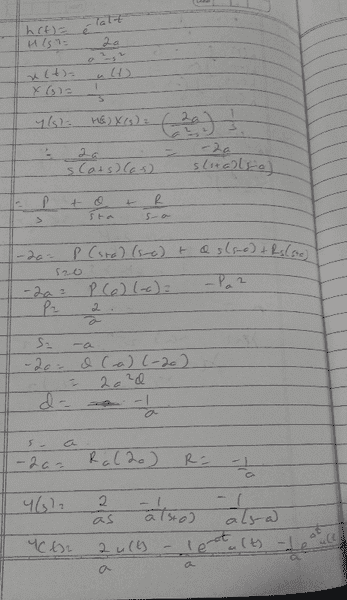 h(t) = e^-|a|t
H(s) = 2a / a²-s²
x(t) = u(t)
X(s) = 1/s
Y(s) = H(s) X(s) = (2a / a²-s²) 1/s
= 2a / s(a+s)(a-s) = -2a / s(s+a)(s-a)
= P/s + Q/s+a + R/s-a
-2a = P(s+a)(s-a) + Q s(s-a) + Rs(s+a)
s=0
-2a = P(a)(-a) = -Pa²
P = 2/a
s = -a
-2a = Q(-a)(-2a)
= 2a²Q
Q = -1/a
s = a
-2a = Ra(2a) R = -1/a
Y(s) = 2/as -1/a(s+a) -1/a(s-a)
y(t) = 2/a u(t) -1/a e^-at u(t) -1/a e^at u(t)